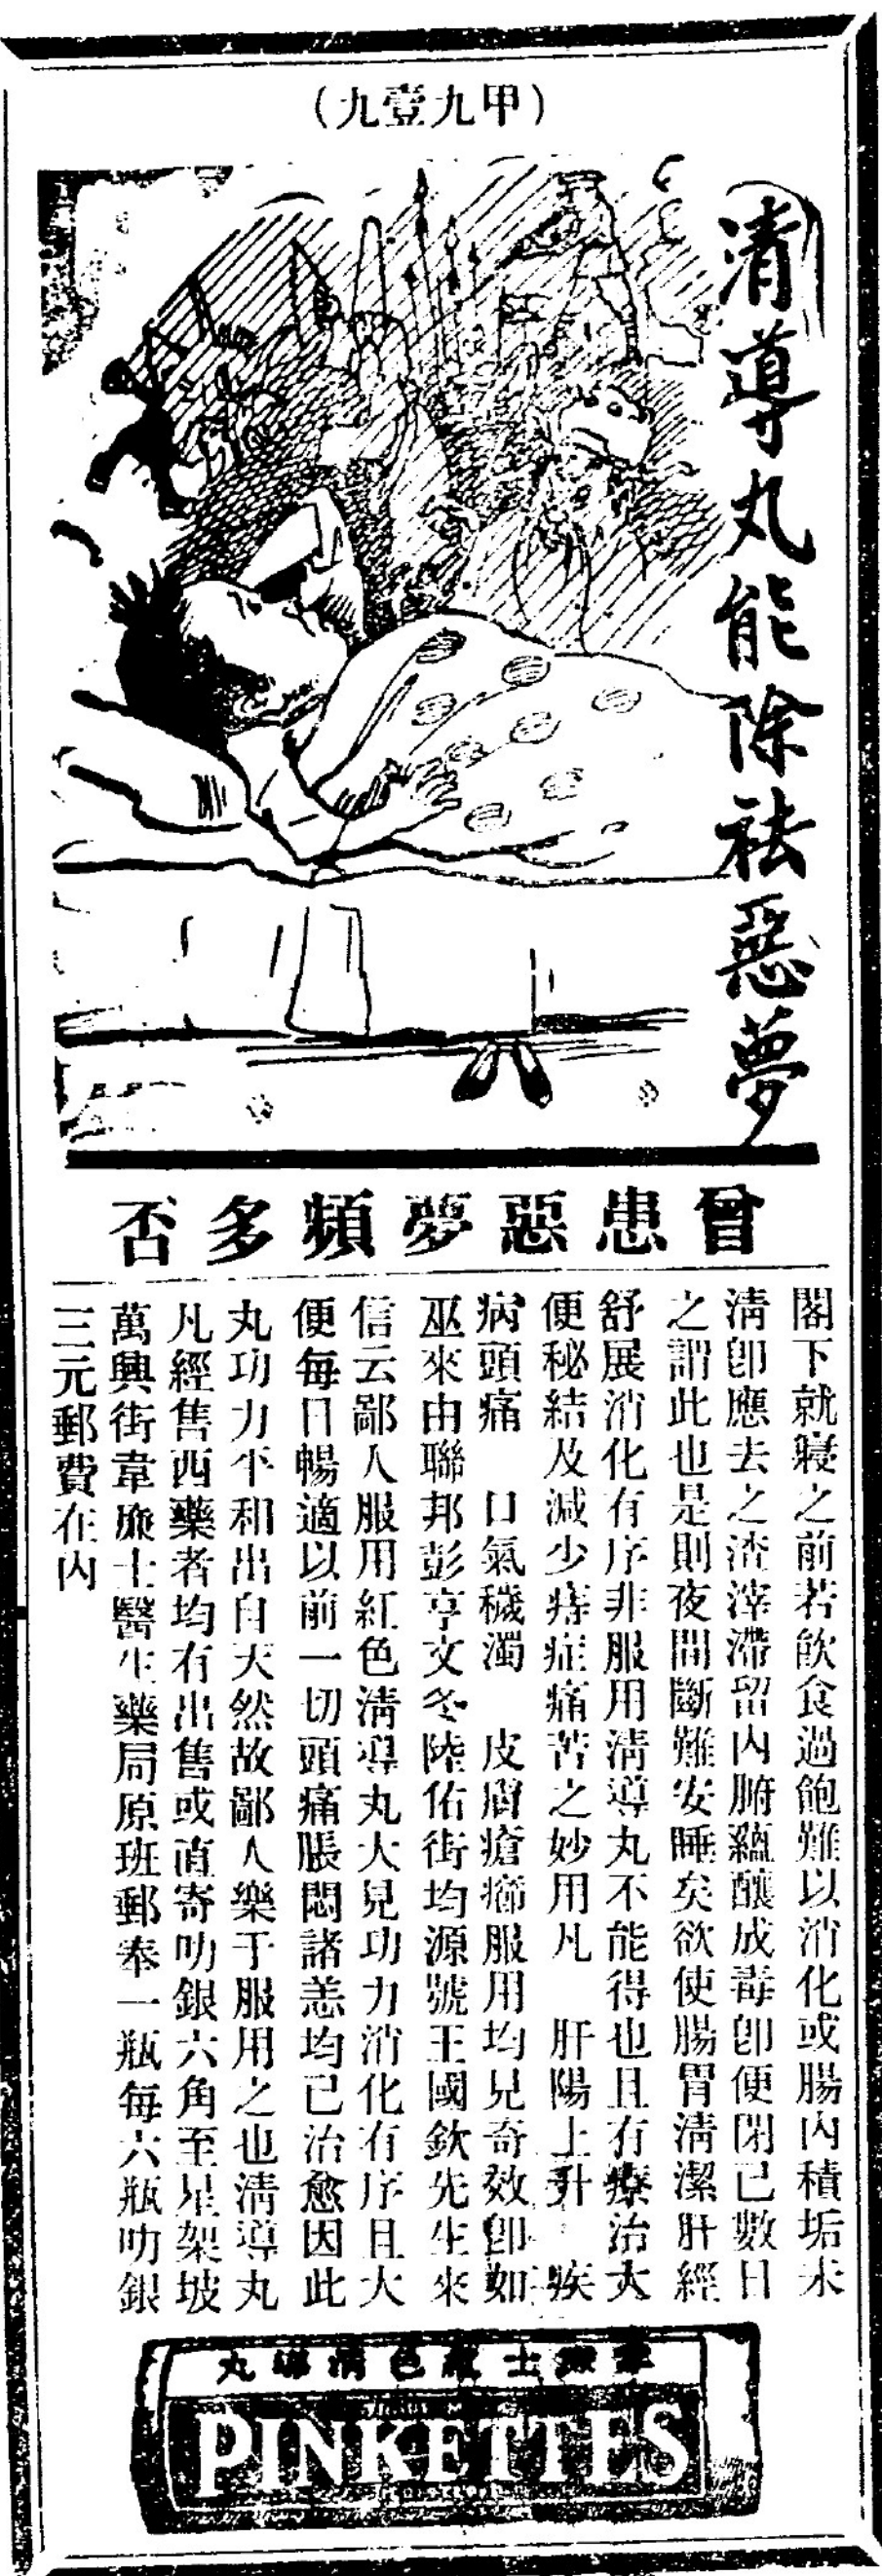 （甲九壹九）
清導丸能除祛惡夢
曾患惡夢頻多否
閣下就寢之前若飲食過飽難以消化或腸內積垢未
清卽應去之渣滓滯留內腑蘊釀成毒卽便閉已數日
之謂此也是則夜間斷難安睡矣欲使腸胃清潔肝經
舒展消化有序非服用清導丸不能得也且有療治大
便秘結及減少痔症痛苦之妙用凡 肝陽上升 疾
病頭痛 口氣穢濁 皮膚瘡癤服用均見奇效卽如
巫來由聯邦彭亨文冬陸佑街均源號王國欽先生來
信云鄙人服用紅色清導丸大見功力消化有序且大
便每日暢適以前一切頭痛脹悶諸恙均已治愈因此
丸功力平和出自天然故鄙人樂于服用之也清導丸
凡經售西藥者均有出售或直寄叻銀六角至星架坡
萬興街韋廉士醫生藥局原班郵奉一瓶每六瓶叻銀
三元郵費在內
韋廉士紅色清導丸
PINKETTES